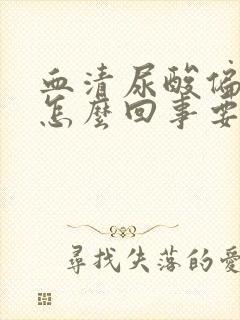 血清尿酸偏
怎麼回事要
尋找失落的愛